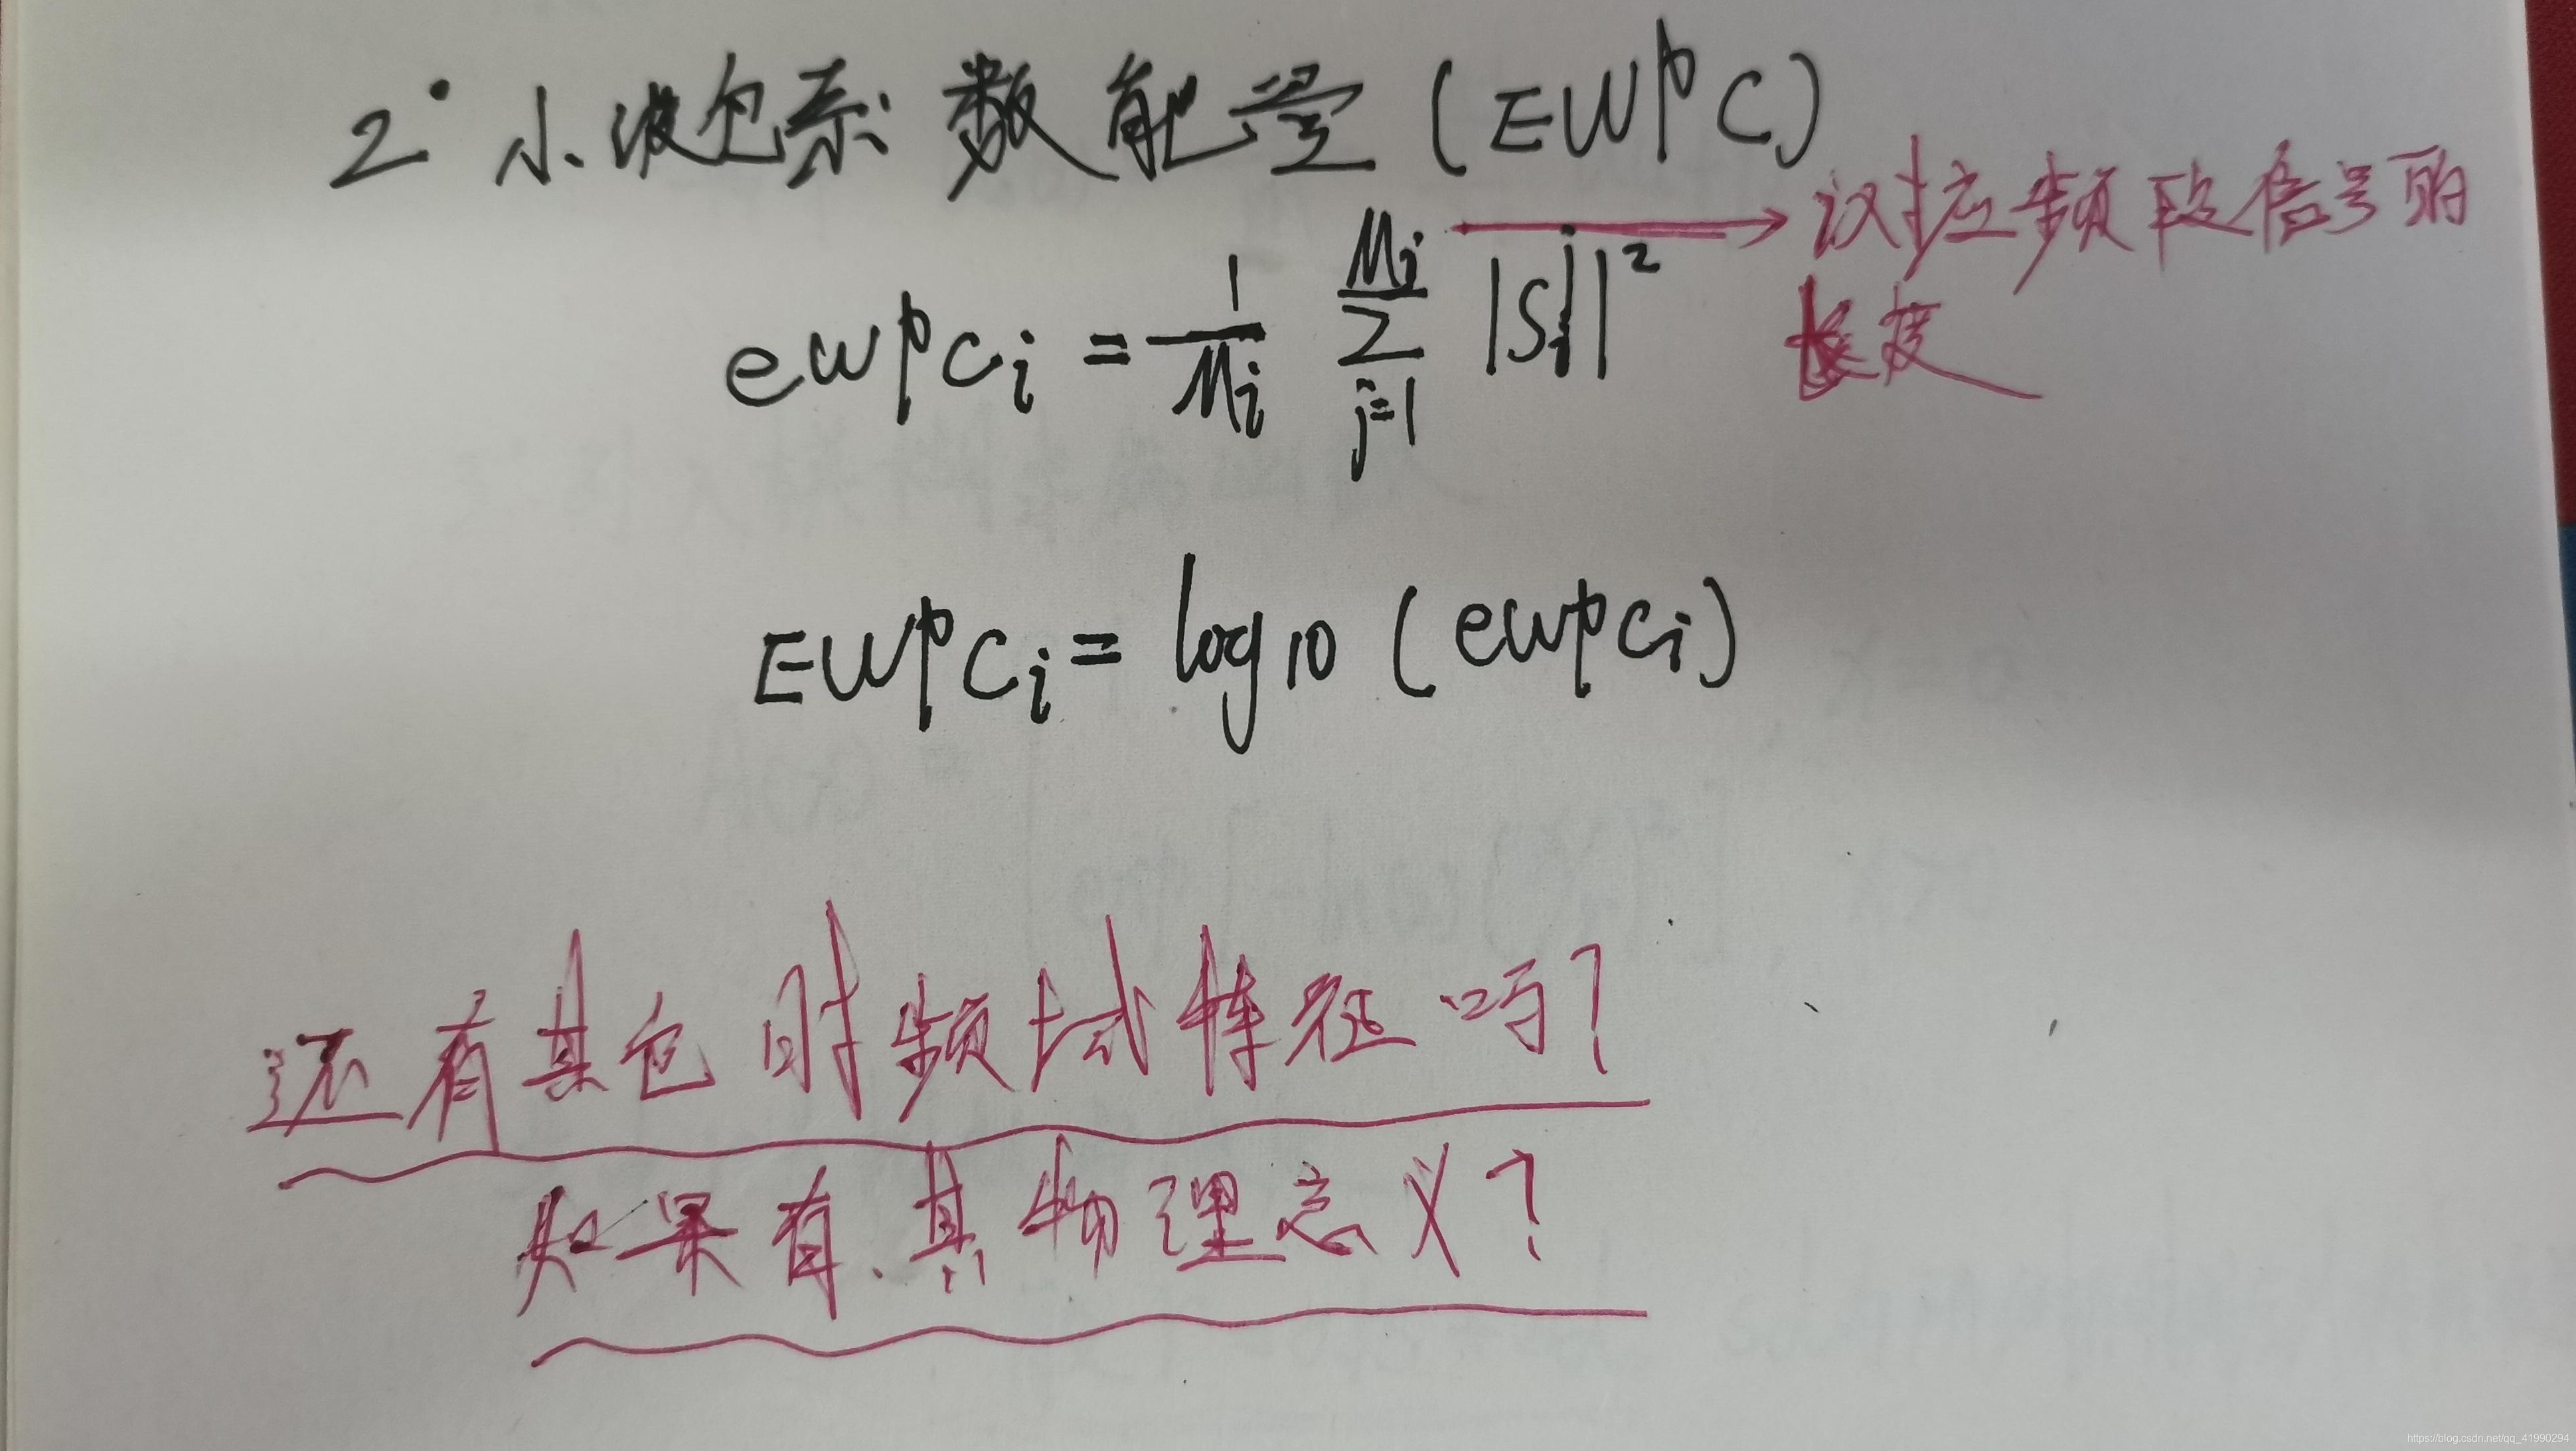 2° 小波包系数能量(EWPC)
对应频段信号的
长度
ewpc_i = \frac{1}{M_i} \sum_{j=1}^{M_i} |S_i^j|^2
EWPC_i = log10 (ewpc_i)
还有其它时频域特征吗?
如果有、其物理意义?
https://blog.csdn.net/qq_41990294